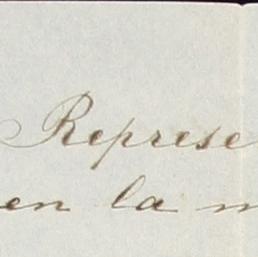 Represe
en la m